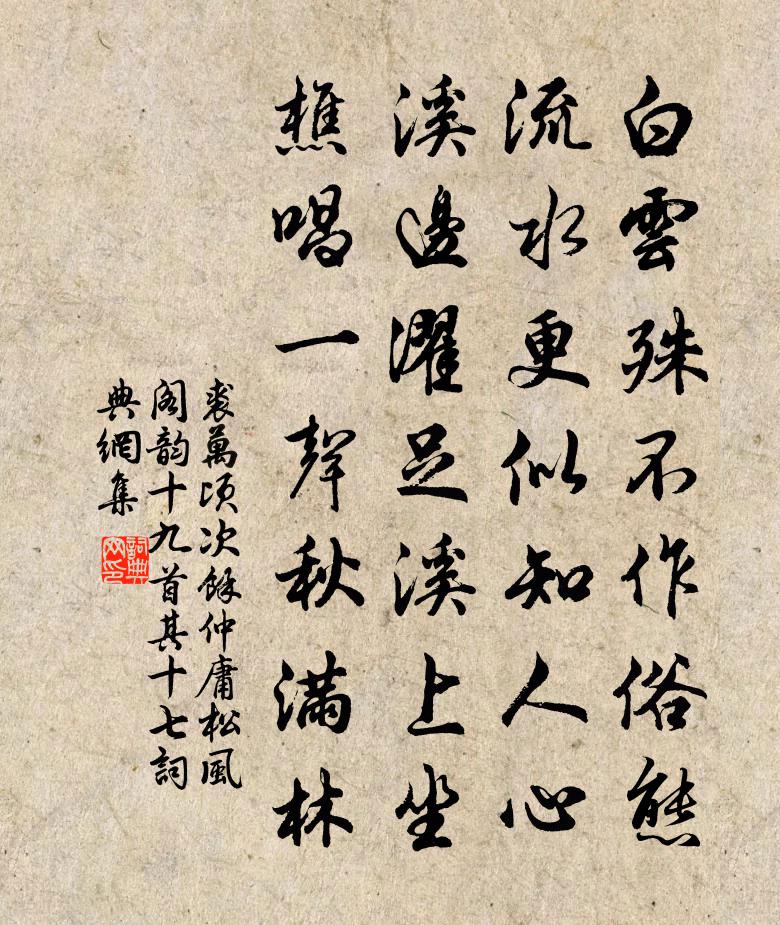 白雲殊不作俗態
流水更似知人心
溪邊濯足溪上坐
樵唱一聲秋滿林
裘萬頃次餘仲庸松風
閣韵十九首其十七詞
典網集
詞典
网印